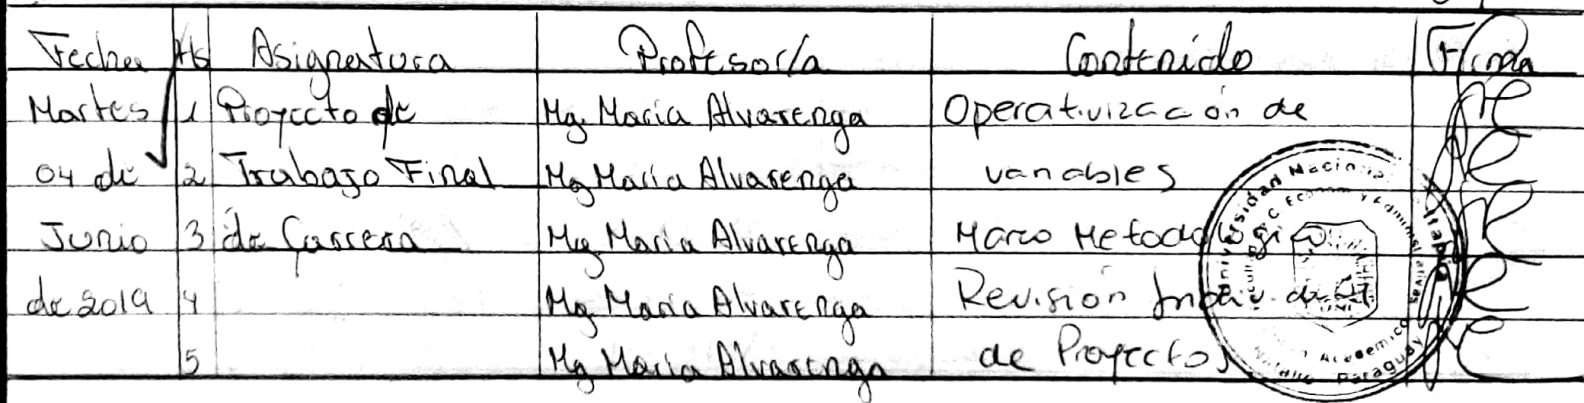 Fecha Hs Asignatura Profesor/a Contenido Firma
Martes 1 Proyecto de Mg. María Alvarenga Operativización de
04 de 2 Trabajo Final Mg María Alvarenga variables
Junio 3 de Carrera Mg María Alvarenga Marco Metodológico
de 2019 4 Mg María Alvarenga Revisión Individual
5 Mg María Alvarenga de Proyectos
Universidad Nacional
Econom y Administrativ
Academico
Paraguay